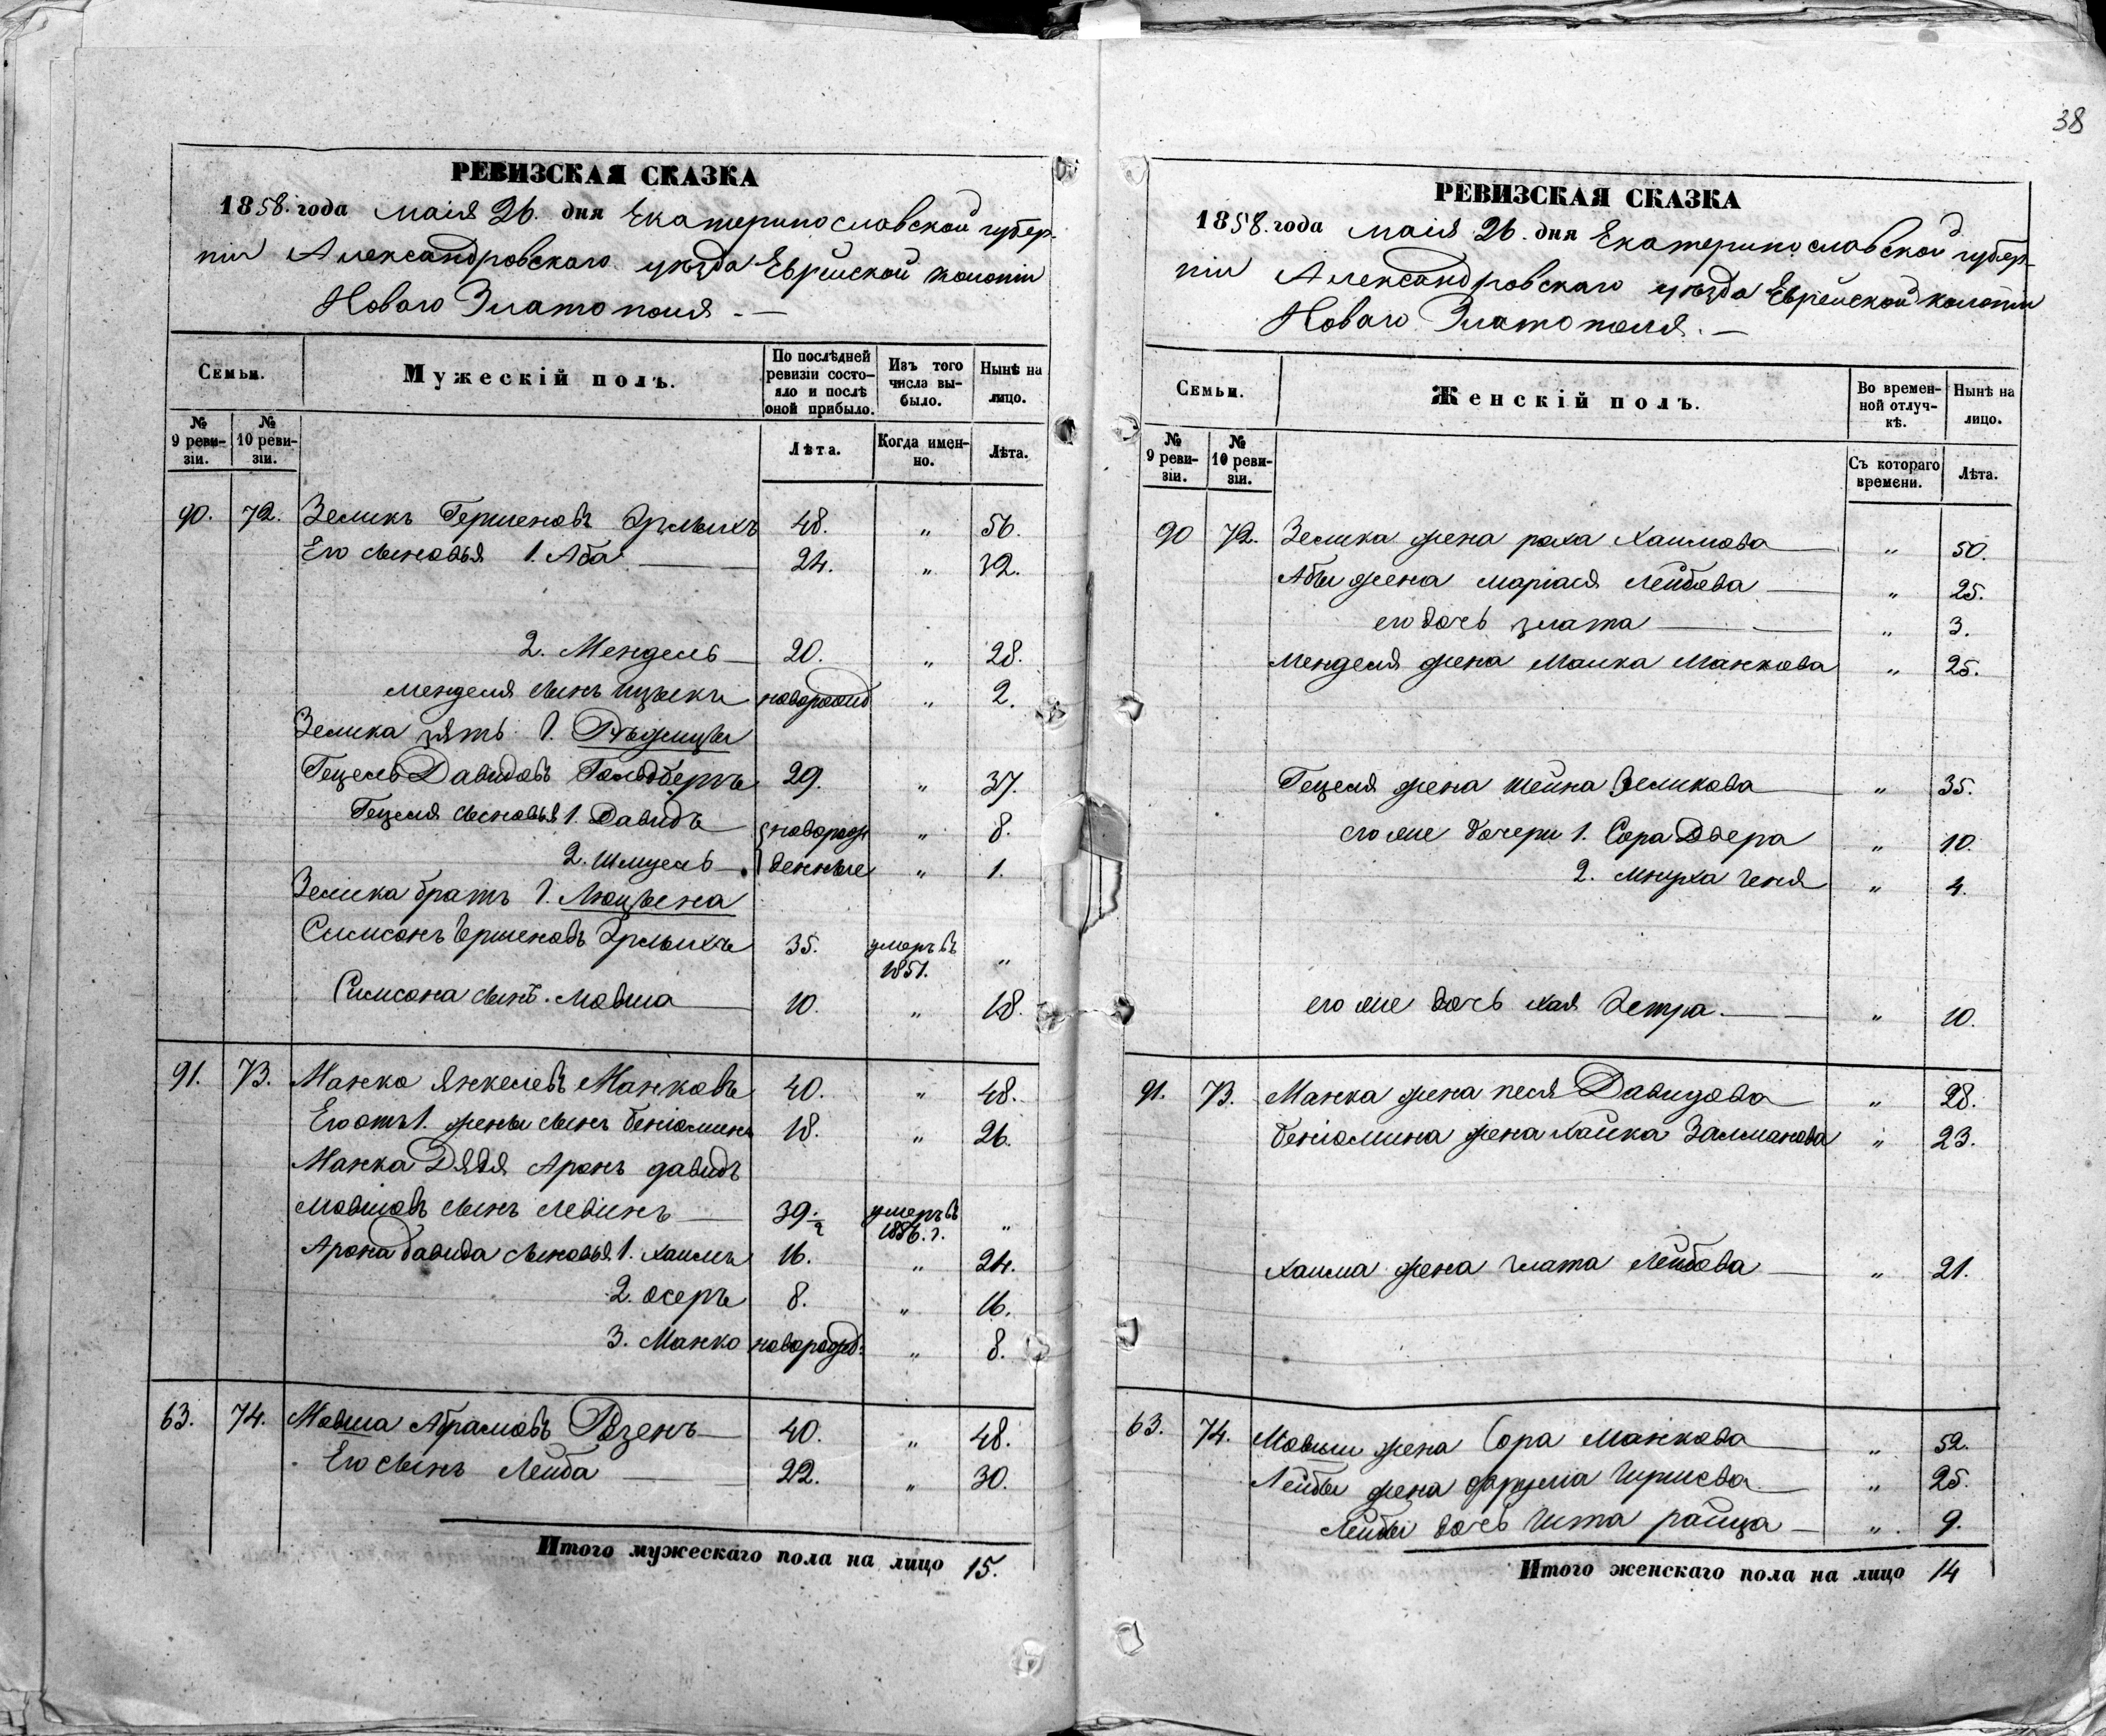 РЕВИЗСКАЯ СКАЗКА
1858. года маія 26. дня Екатеринославской губер-
ніи Александровскаго уѣзда Еврейской колоніи
Новаго Златополя. —
Семьи.
Мужескій полъ.
По послѣдней ревизіи состояло и послѣ оной прибыло.
Изъ того числа выбыло.
Нынѣ на лицо.
№ 9 ревизіи.
№ 10 ревизіи.
Лѣта.
Когда именно.
Лѣта.
90. 72. Зеликъ Гершеновъ 48. " 56.
Его сыновья 1. Аба 24. " 32.
2. Мендель 20. " 28.
Менделя сынъ Ицыкъ новорожд " 2.
Зелика зять 1.
Гецель Давидовъ Гольдбергъ 29. " 37.
Гецеля сыновья 1. Давидъ новорож " 8.
2. Шмуель денные " 1.
Зелика братъ 1.
Симсонъ Гершеновъ 35. умеръ въ 1851. "
Симсона сынъ. Мовша 10. " 18.
91. 73. Манко Янкелевъ Манковъ 40. " 48.
Его отъ 1. жены сынъ Беніоминъ 18. " 26.
Манка Дядя Аронъ Давидъ
Мовшовъ сынъ Левинъ 39. умеръ въ 1856. г. "
Арона Давида сыновья 1. Хаимъ 16. " 24.
2. Осеръ 8. " 16.
3. Манко новорожд: " 8.
63. 74. Мовша Абрамовъ Розенъ 40. " 48.
Его сынъ Лейба 22. " 30.
Итого мужескаго пола на лицо 15.
38
РЕВИЗСКАЯ СКАЗКА
1858. года маія 26. дня Екатеринославской губер-
ніи Александровскаго уѣзда Еврейской колоніи
Новаго Златополя. —
Семьи.
Женскій полъ.
Во временной отлучкѣ.
Нынѣ на лицо.
№ 9 ревизіи.
№ 10 ревизіи.
Съ котораго времени.
Лѣта.
90 72. Зелика жена Раха Хаимова " 50.
Абы жена Маріася Лейбова " 25.
его дочь Злата " 3.
Менделя жена Малка Манкова " 25.
Гецеля жена Шейна Зеликова " 35.
его же дочери 1. Сора Двера " 10.
2. Мнуха Геня " 4.
его же дочь Хая Естра. " 10.
91. 73. Манка жена Песя Давидова " 28.
Беніомина жена Хайка Залманова " 23.
Хаима жена Злата Лейбова " 21.
63. 74. Мовши жена Сора Манкова " 52.
Лейбы жена Фрума " 25.
Лейбы дочь Гита Райца " 9.
Итого женскаго пола на лицо 14